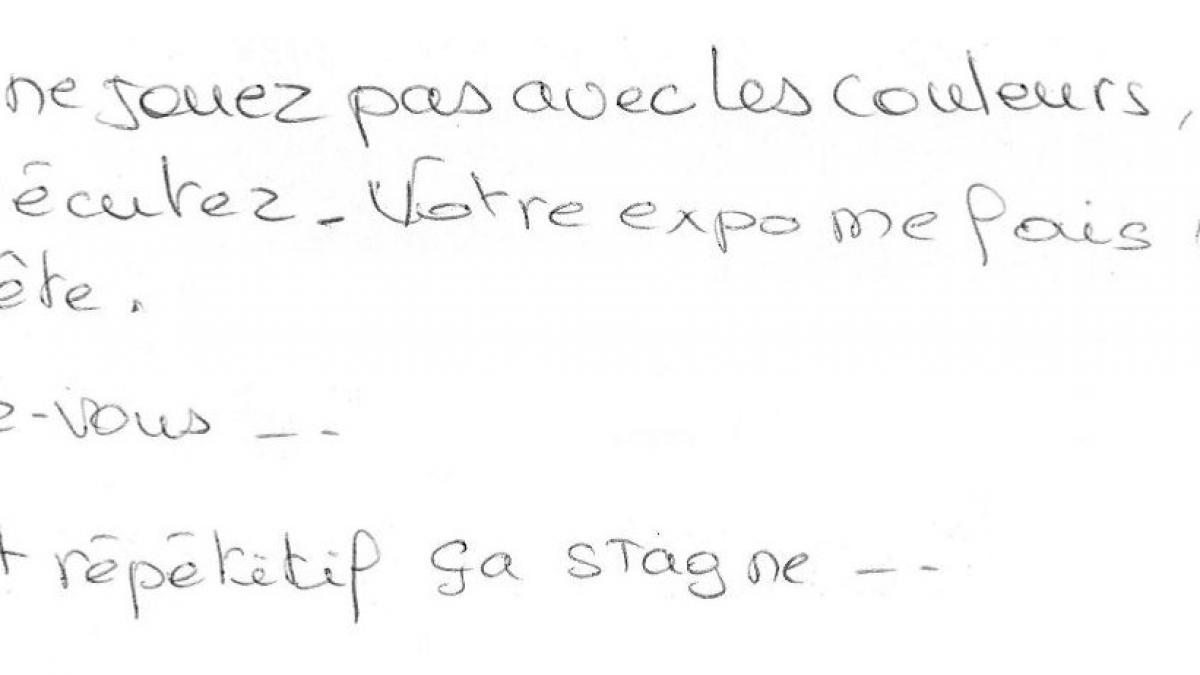 ne jouez pas avec les couleurs,
écutez - Votre expo me fais
ête.
e-vous ---
t répétitif ça stagne ---